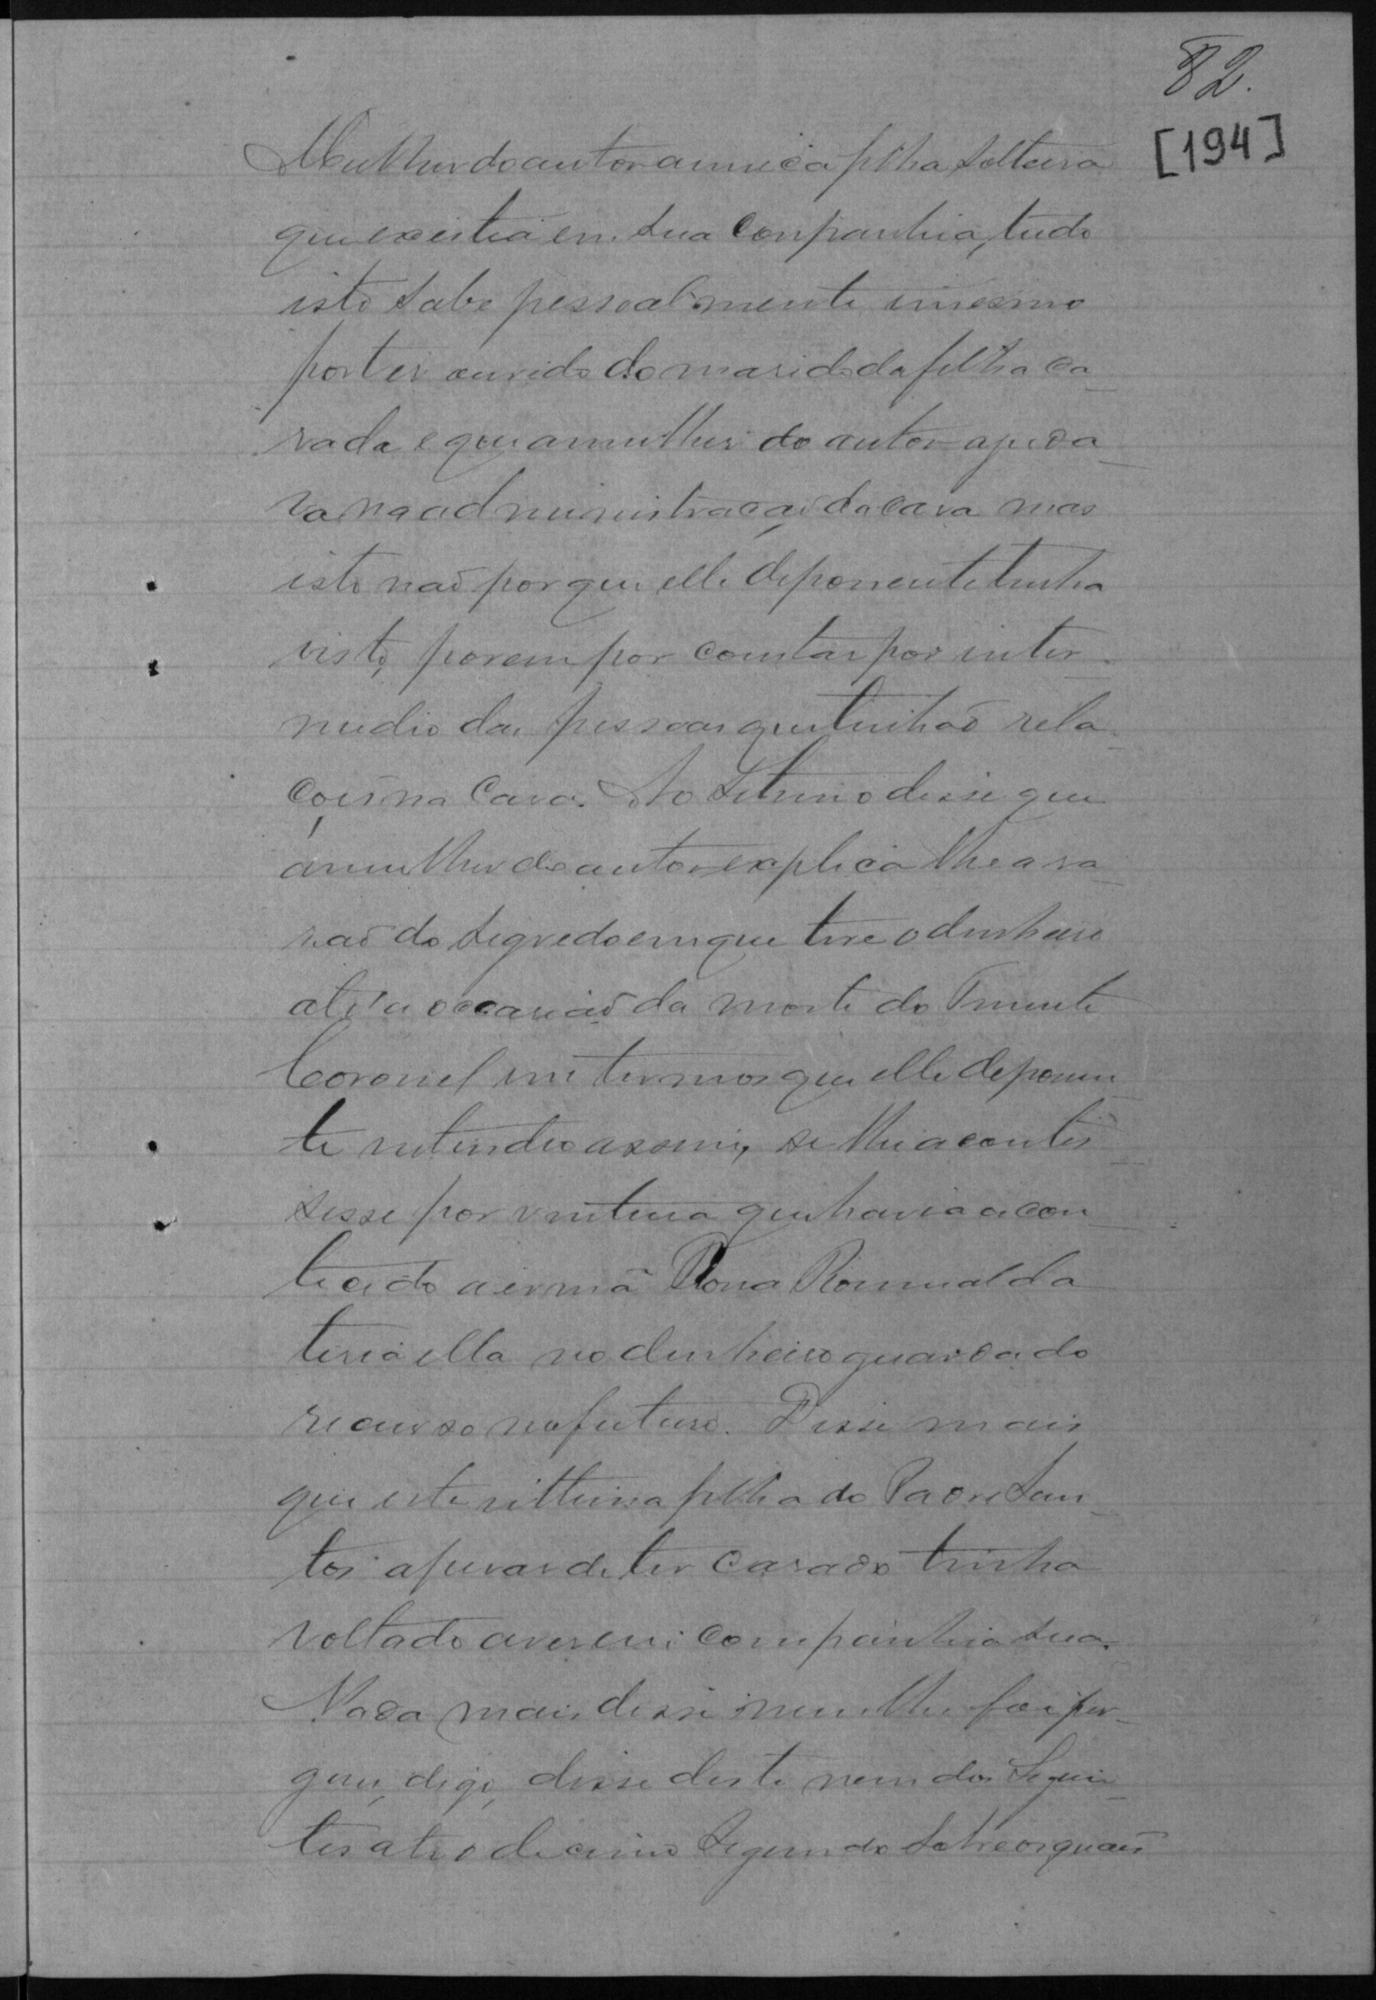 82.
[194]
Mulher do autor a unica filha solteira
que existia em sua companhia, tudo
isto sabe pessoalmente e mesmo
por ter ouvido do marido da filha ca-
sada e que a mulher do autor ajuda-
va na administração da casa mas
isto naõ por que elle deponente tenha
visto, porem por constar por inter-
medio das pessoas que tinhaõ rela-
çoes na casa. Ao setimo disse que
a mulher do autor explica lhe a ra-
saõ do segredo em que teve o dinheiro
até a occasiaõ da morte do Tenente
Coronel em termos que elle deponen-
te entendeo assim, se lhe acontes-
sesse por ventura que havia acon-
tecido a irmã Dona Romualda
teria ella no dinheiro guardado
recurso no futuro. Disse mais
que esta filha do Padre San-
tos apesar de ter casado tinha
voltado a viver em companhia sua.
Nada mais disse nem lhe foi per-
gun, digo, disse deste nem dos seguin-
tes até o decimo segundo sobre os quaes